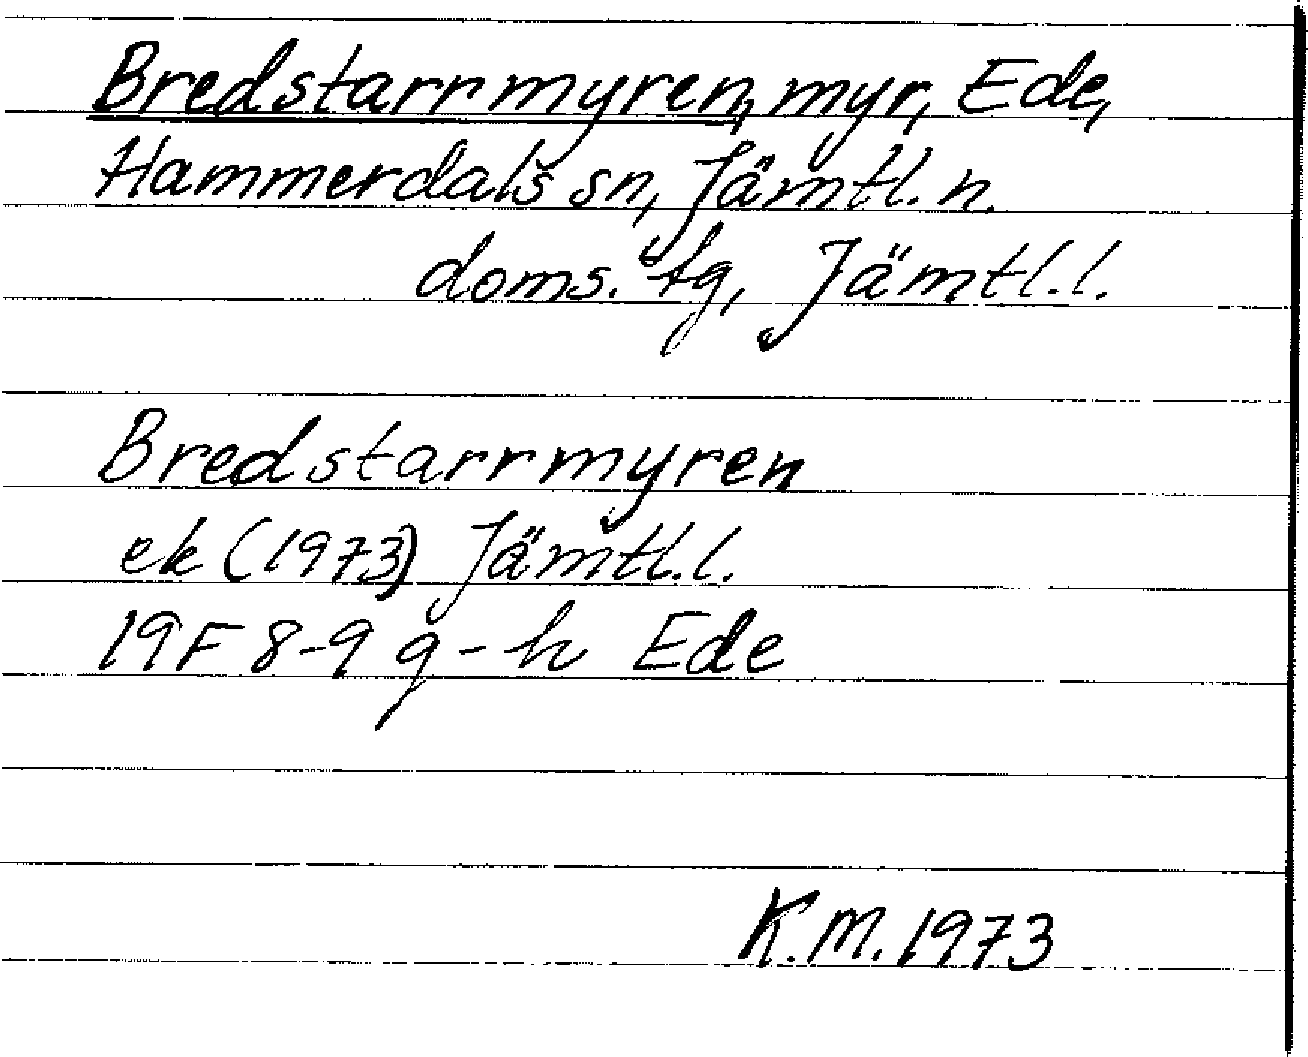 Bredstarrmyren, myr, Ede,
Hammerdals sn, Jämtl. n.
doms. tg, Jämtl. l.
Bredstarrmyren
ek (1973) Jämtl. l.
19F 8-9 g-h Ede
K.M. 1973